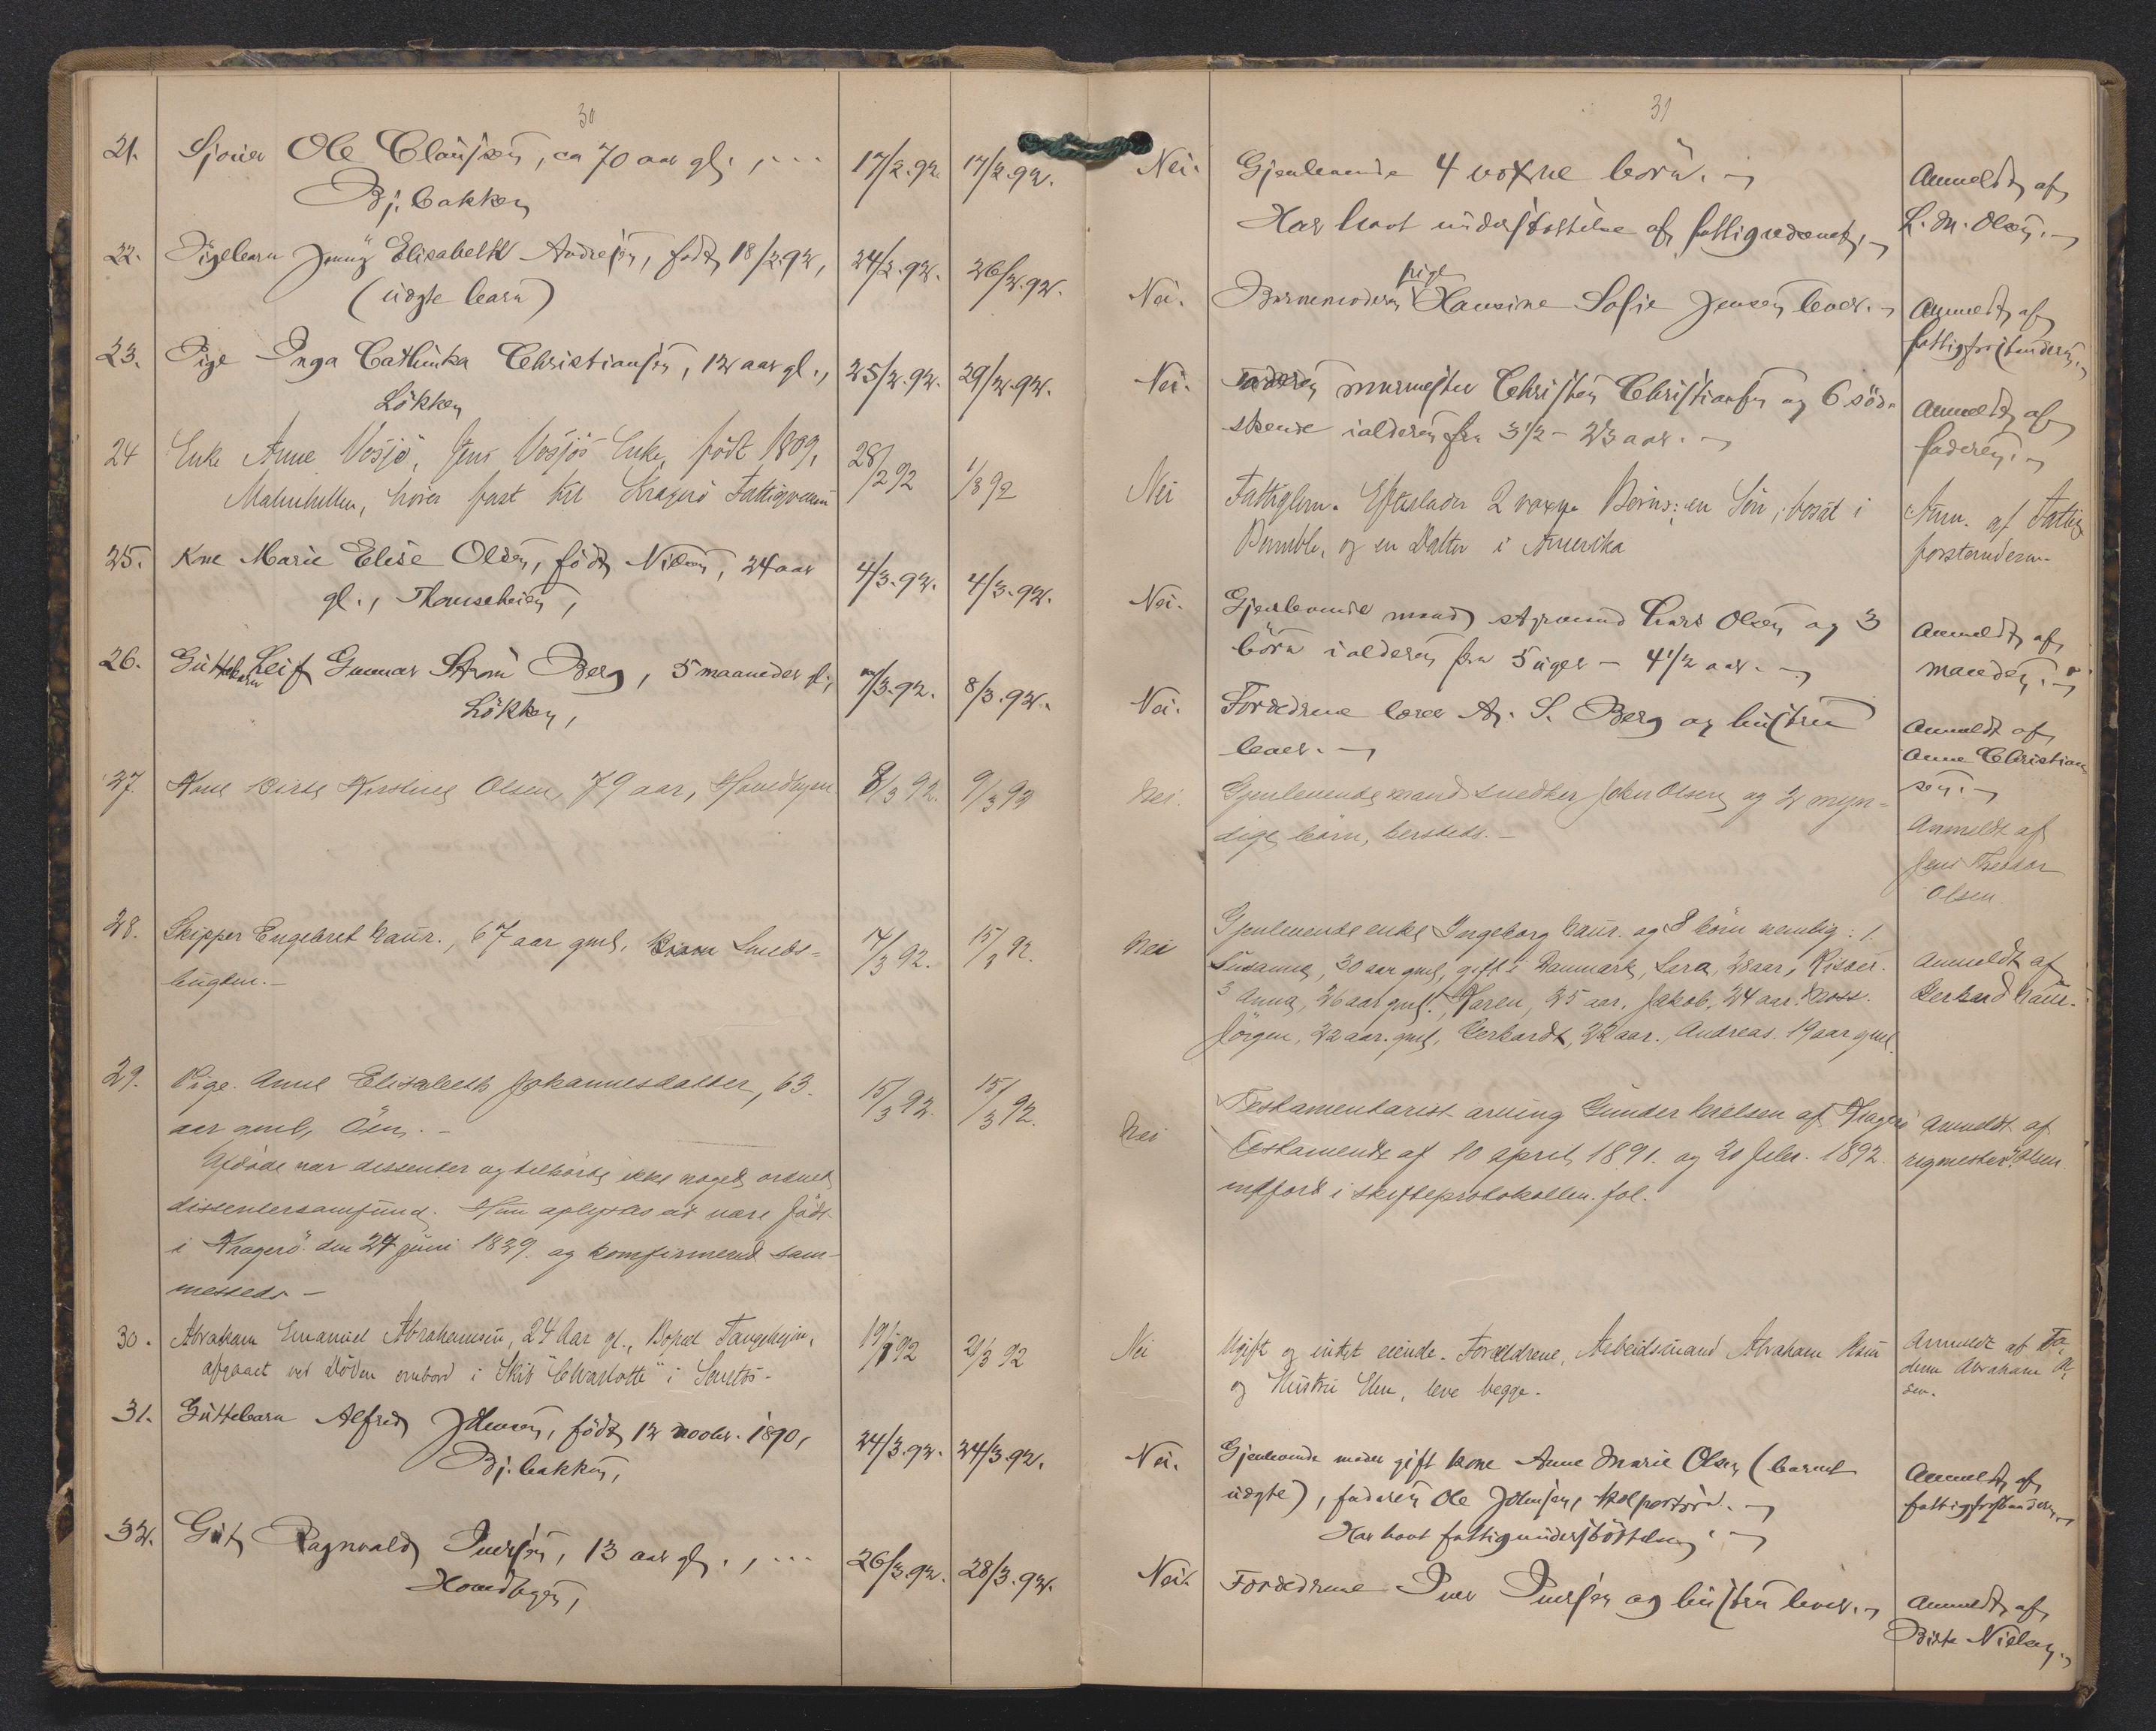 30
21. Sjöner Ole Clausen, ca 70 aar gl., 17/2.92. 17/2.92.
Bj. bakken
22. Pigebarn Jenny Elisabeth Andresen, födt 18/2.92, 24/2.92. 26/2.92.
(uægte barn)
23. Pige Inga Cathinka Christiansen, 12 aar gl., 25/2.92. 29/2.92.
Lökken
24 Enke Anne Vosjö, Jens Vosjös Enke, födt 1809, 28/2 92 1/3 92
hörer fast til Kragerö Fattigvæsen
25. Kone Marie Elise Olsen, född Nilsen, 24 aar 4/3.92. 4/3.92.
gl.,
26. Guttebarn Leif Gunnar Ström Berg, 5 maaneder gl., 7/3.92. 8/3.92.
Lökken,
27. Kone Birte Kirstine Olsen, 79 aar, Hovedbyen 8/3 92. 9/3 92
28. Skipper Engebret Laur., 67 aar gml., Smeds-
bugten. 14/3 92. 15/3 92.
29. Pige. Anne Elisabeth Johannesdatter, 63. 15/3 92. 15/3 92.
aar gml, Öen. –
Afdöde var dissenter og tilhörte ikke noget ordnet
dissentersamfund. Hun oplystes at være födt
i Kragerö den 24 juni 1829. og komfirmered sam-
mesteds –
30. Abraham Emanuel Abrahamsen, 24 Aar gl., Bopæl Tangehejen, 19/1 92 21/3 92
afgaaet ved Döden ombord i Skib "Charlotte" i Santos.
31. Guttebarn Alfred Johnsen, födt 12 novbr. 1890, 24/3.92. 24/3.92.
Bj. bakken,
32. Gut Ragnvald Iversen, 13 aar gl., 26/3.92. 28/3.92.
Hovedbyen,
31
Nei. Gjenlevende 4 voxne börn. Anmeldt af
Har havt understöttelse af fattigvæsenet, L. M. Olsen.
Nei. Barnemoderen pige Hansine Sofie Jensen lever. Anmeldt af
fattigforstanderen.
Nei. Faderen murmester Christen Christiansen og 6 söd- Anmeldt af
skende i alderen fra 3 1/2 – 23 aar. faderen.
Nei Fattiglem. Efterlader 2 voxne Börn: en Sön, bosat i Anm. af Fattig
Bamble, og en Datter i Amerika forstanderen.
Nei. Gjenlevende mand styrmand Lars Olsen og 3 Anmeldt af
börn i alderen fra 5 uger – 4 1/2 aar. manden.
Nei. Forældrene lærer A. S. Berg og hustru Anmeldt af
lever. Anne Christian
sen.
Nei. Gjenlevende mand snedker John Olsen og 2 myn-
dige börn, hersteds. – Anmeldt af
Jens Olsen.
Nei Gjenlevende enke Ingeborg Laur. og 8 börn nemlig: 1.
Susanne, 30 aar gml, gift i Danmark, Sara, 28 aar, Risöer. Anmeldt af
3 Anna, 26 aar gml. Karen, 25 aar, Jakob, 24 aar. Moss. Gerhard Laur.
Jörgen, 22 aar. gml, Gerhardt, 22 aar., Andreas. 19 aar gml.
Nei Testamentarisk arving Gunder Nielsen af Kragerö Anmeldt af
Testamente af 10 april 1891. og 20 febr. 1892. Olsen.
indförd i skifteprotokollen. fol.
Nei Ugift og intet eiende. Forældrene, Arbeidsmand Abraham Anmeldt af Fa-
og Hustru Elen, leve begge. deren Abraham
sen.
Nei. Gjenlevende moder gift kone Anne Marie Olsen (barnet Anmeldt af
uægte), faderen Ole Johnsen, kolportör. fattigforstanderen
Har havt fattigunderstöttelse.
Nei. Forældrene Iver Iversen og hustru lever. Anmeldt af
Birte Nielsen.